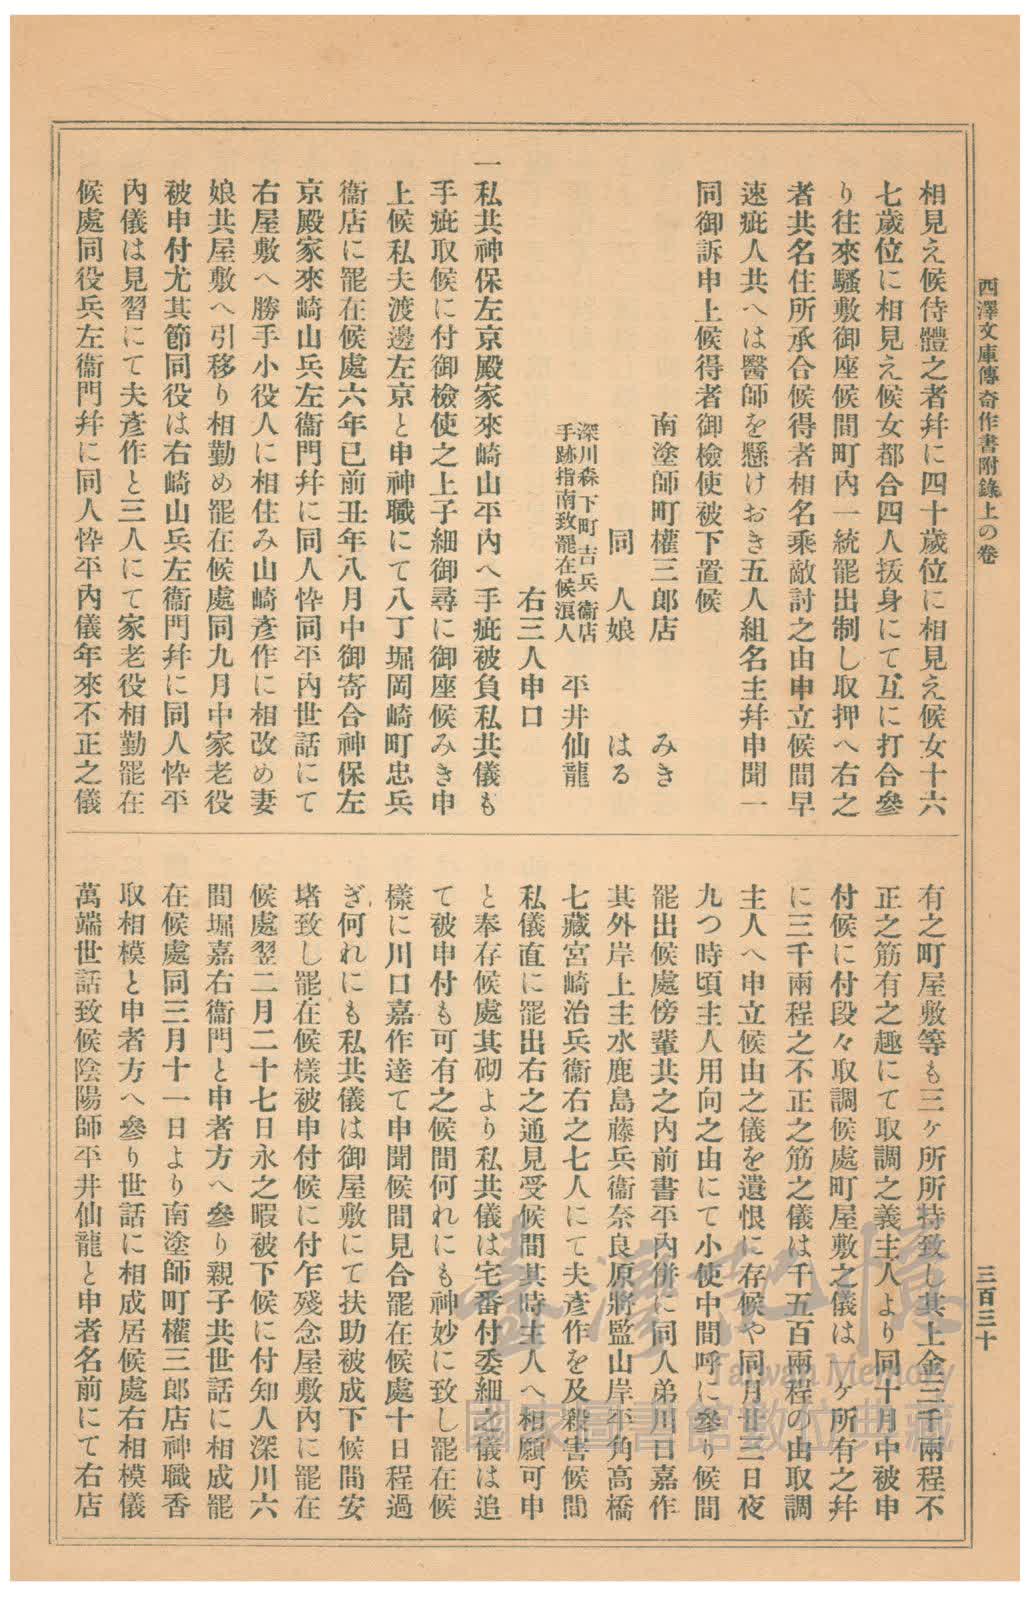 西澤文庫傳奇作書附錄上の卷
三百三十
相見え候侍體之者幷に四十歲位に相見え候女十六
七歲位に相見え候女都合四人拔身にて互に打合參
り往來騷敷御座候間町內一統罷出制し取押へ右之
者共名住所承合候得者相名乘敵討之由申立候間早
速疵人共へは醫師を懸けおき五人組名主幷申聞一
同御訴申上候得者御檢使被下置候
南塗師町權三郎店 みき
同人娘 はる
深川森下町吉兵衞店
手跡指南致罷在候浪人 平井仙龍
右三人申口
一私共神保左京殿家來崎山平內へ手疵被負私共儀も
手疵取候に付御檢使之上子細御尋に御座候みき申
上候私夫渡邊左京と申神職にて八丁堀岡崎町忠兵
衞店に罷在候處六年已前丑年八月中御寄合神保左
京殿家來崎山兵左衞門幷に同人忰同平內世話にて
右屋敷へ勝手小役人に相住み山崎彥作に相改め妻
娘共屋敷へ引移り相勤め罷在候處同九月中家老役
被申付尤其節同役は右崎山兵左衞門幷に同人忰平
內儀は見習にて夫彥作と三人にて家老役相勤罷在
候處同役兵左衞門幷に同人忰平內儀年來不正之儀
有之町屋敷等も三ケ所所持致し其上金三千兩程不
正之筋有之趣にて取調之義主人より同十月中被申
付候に付段々取調候處町屋敷之儀は ケ所有之幷
に三千兩程之不正之筋之儀は千五百兩程の由取調
主人へ申立候由之儀を遺恨に存候や同月廿三日夜
九つ時頃主人用向之由にて小使中間呼に參り候間
罷出候處傍輩共之內前書平內併に同人弟川口嘉作
其外岸上主水鹿島藤兵衞奈良原將監山岸平角高橋
七藏宮崎治兵衞右之七人にて夫彥作を及殺害候間
私儀直に罷出右之通見受候間其時主人へ相願可申
と奉存候處其砌より私共儀は宅番付委細之儀は追
て被申付も可有之候間何れにも神妙に致し罷在候
樣に川口嘉作達て申聞候間見合罷在候處十日程過
ぎ何れにも私共儀は御屋敷にて扶助被成下候間安
堵致し罷在候樣被申付候に付乍殘念屋敷內に罷在
候處翌二月二十七日永之暇被下候に付知人深川六
間堀嘉右衞門と申者方へ參り親子共世話に相成罷
在候處同三月十一日より南塗師町權三郎店神職香
取相模と申者方へ參り世話に相成居候處右相模儀
萬端世話致候陰陽師平井仙龍と申者名前にて右店
臺灣記憶
Taiwan Memory
國家圖書館數位典藏